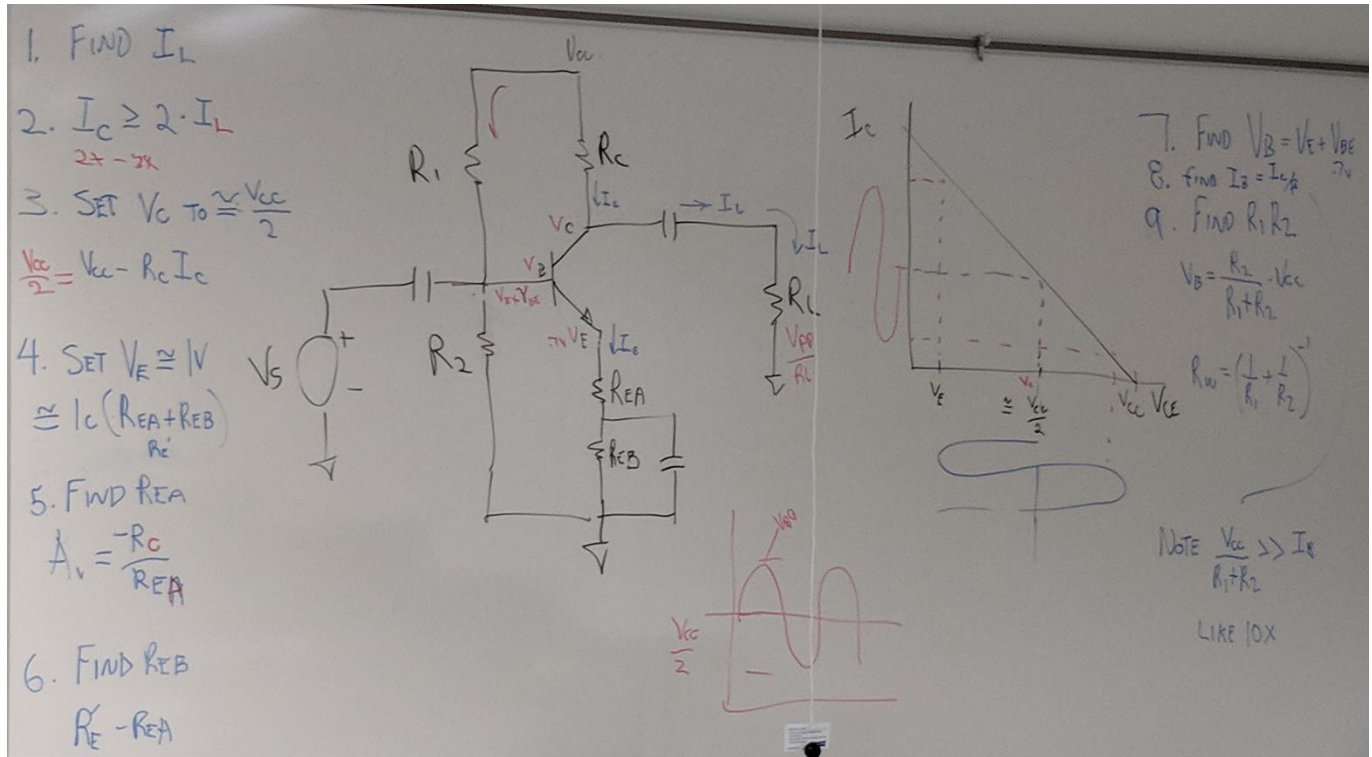 1. FIND IL
2. IC ≥ 2·IL
3. SET VC TO ≅ VCC/2
VCC/2 = VCC - RC IC
4. SET VE ≅ 1V
≅ IC (REA+REB)
RE'
5. FIND REA
Av = -RC/REA
6. FIND REB
RE' - REA
VCC
R1
RC
↓IC
VC
→ IL
↓IL
VB
RL
VPP/RL
VS
+
-
R2
.7V
VE
↓IC
REA
REB
VCC/2
IC
VE
VC
≅ VCC/2
VCC
VCE
7. FIND VB = VE + VBE
.7V
8. FIND IB = IC/β
9. FIND R1 R2
VB = R2/(R1+R2) · VCC
= (1/R1 + 1/R2)^-1
NOTE VCC/(R1+R2) >> IB
LIKE 10X